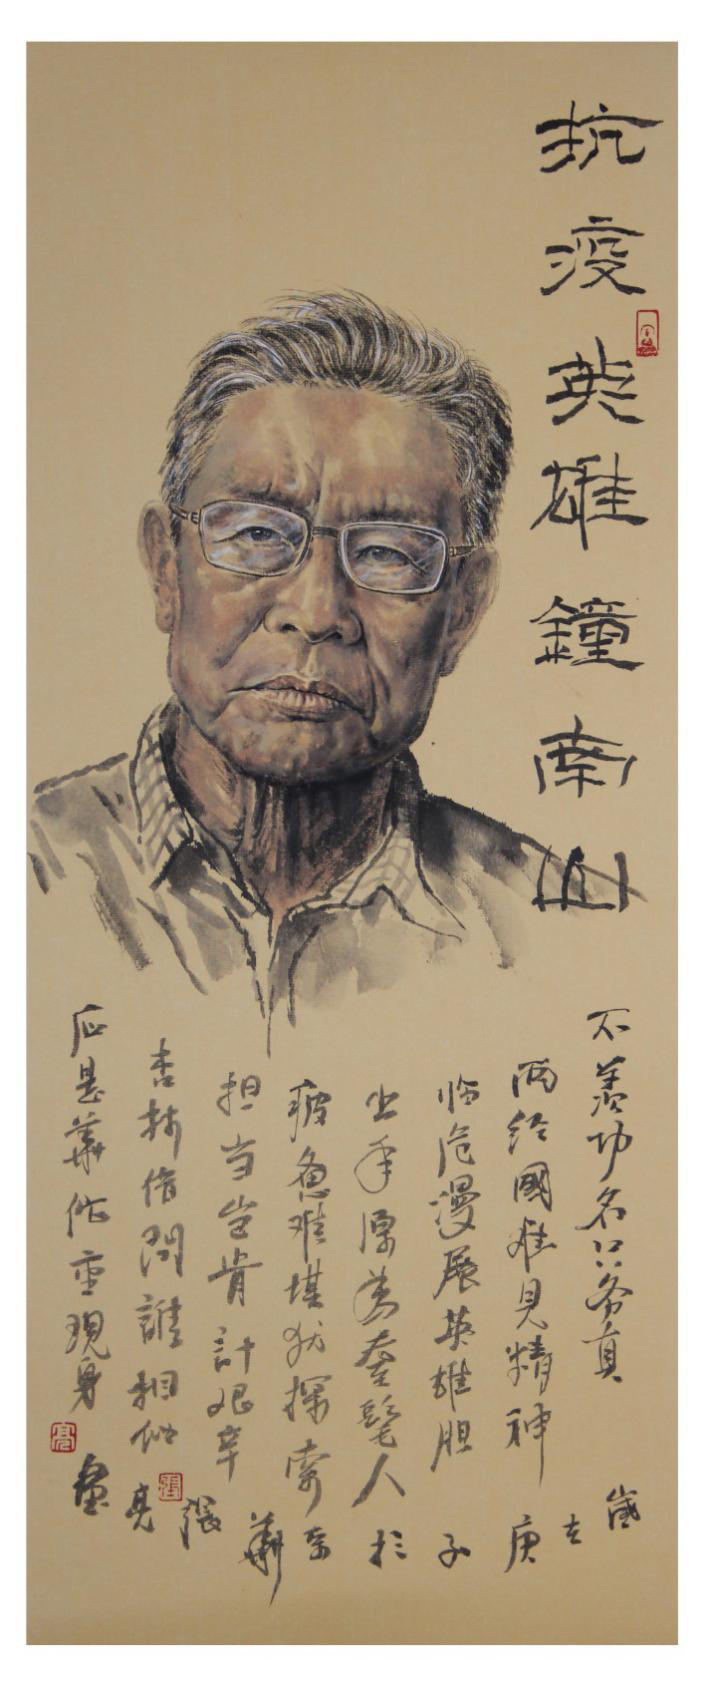 抗疫英雄鐘南山
不羨功名只务真
两经國难見精神
临危漫展英雄胆
出手原为耋髦人
疲惫难堪犹探索
担当岂肯計艰辛
杏林借問誰相似
应是華佗重現身
歲在庚子於京華張亮畫